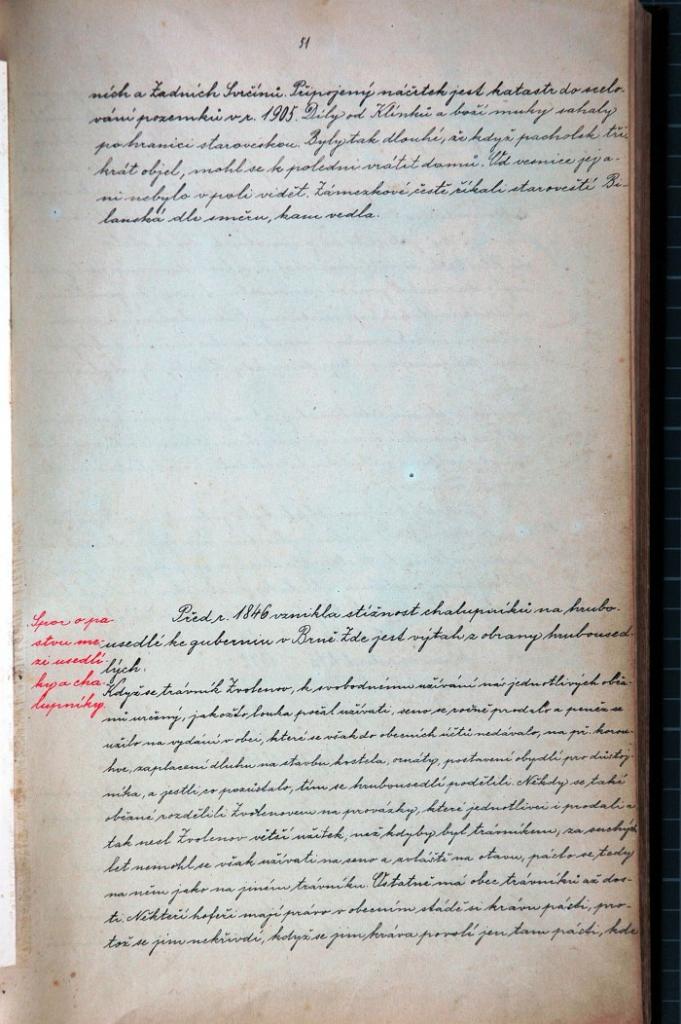 51
ních a Zadních Svrčínů. Připojený náčrtek jest katastr do scelo-
vání pozemků v r. 1905. Díly od Klínků a boží muky sahaly
po hranici staroveskou. Byly tak dlouhé, že když pacholek tři-
krát objel, mohl se k polední vrátit domů. Od vesnice jej a-
ni nebylo v poli vidět. Zámezkové cestě říkali staroveští Bi-
lanská dle směru, kam vedla.
Spor o pa-
stvu me-
zi usedlí-
ky a cha-
lupníky.
Před r. 1846 vznikla stížnost chalupníků na hrubo-
usedlé ke guberniu v Brně. Zde jest výtah z obrany hrubousedl-
lých.
Když se trávník Zvolenov, k svobodnému užívání ná jednotlivých obča-
nů určený, jakožto louka počal užívati, seno se ročně prodalo a peněz se
užilo na vydání v obci, které se však do obecních účtů nedávalo, na př. korou-
hve, zaplacení dluhu na stavbu kostela, ornáty, postavení obydlí pro důstoj-
níka, a jestli co pozůstalo, tím se hrubousedlí podělili. Někdy se také
občané rozdělili Zvolenovem na provázky, které jednotlivci i prodali a
tak nesl Zvolenov větší užitek, než kdyby byl trávníkem, za suchých
let nemohl se však užívati na seno a zvláště na otavu, páslo se, tedy
na něm jako na jiném trávníku. Ostatně má obec trávníků až dos-
ti. Někteří hofeři mají právo v obecním stádě si krávu pásti, pro-
tož se jim nekřivdí, když se jim kráva povolí jen tam pásti, kde